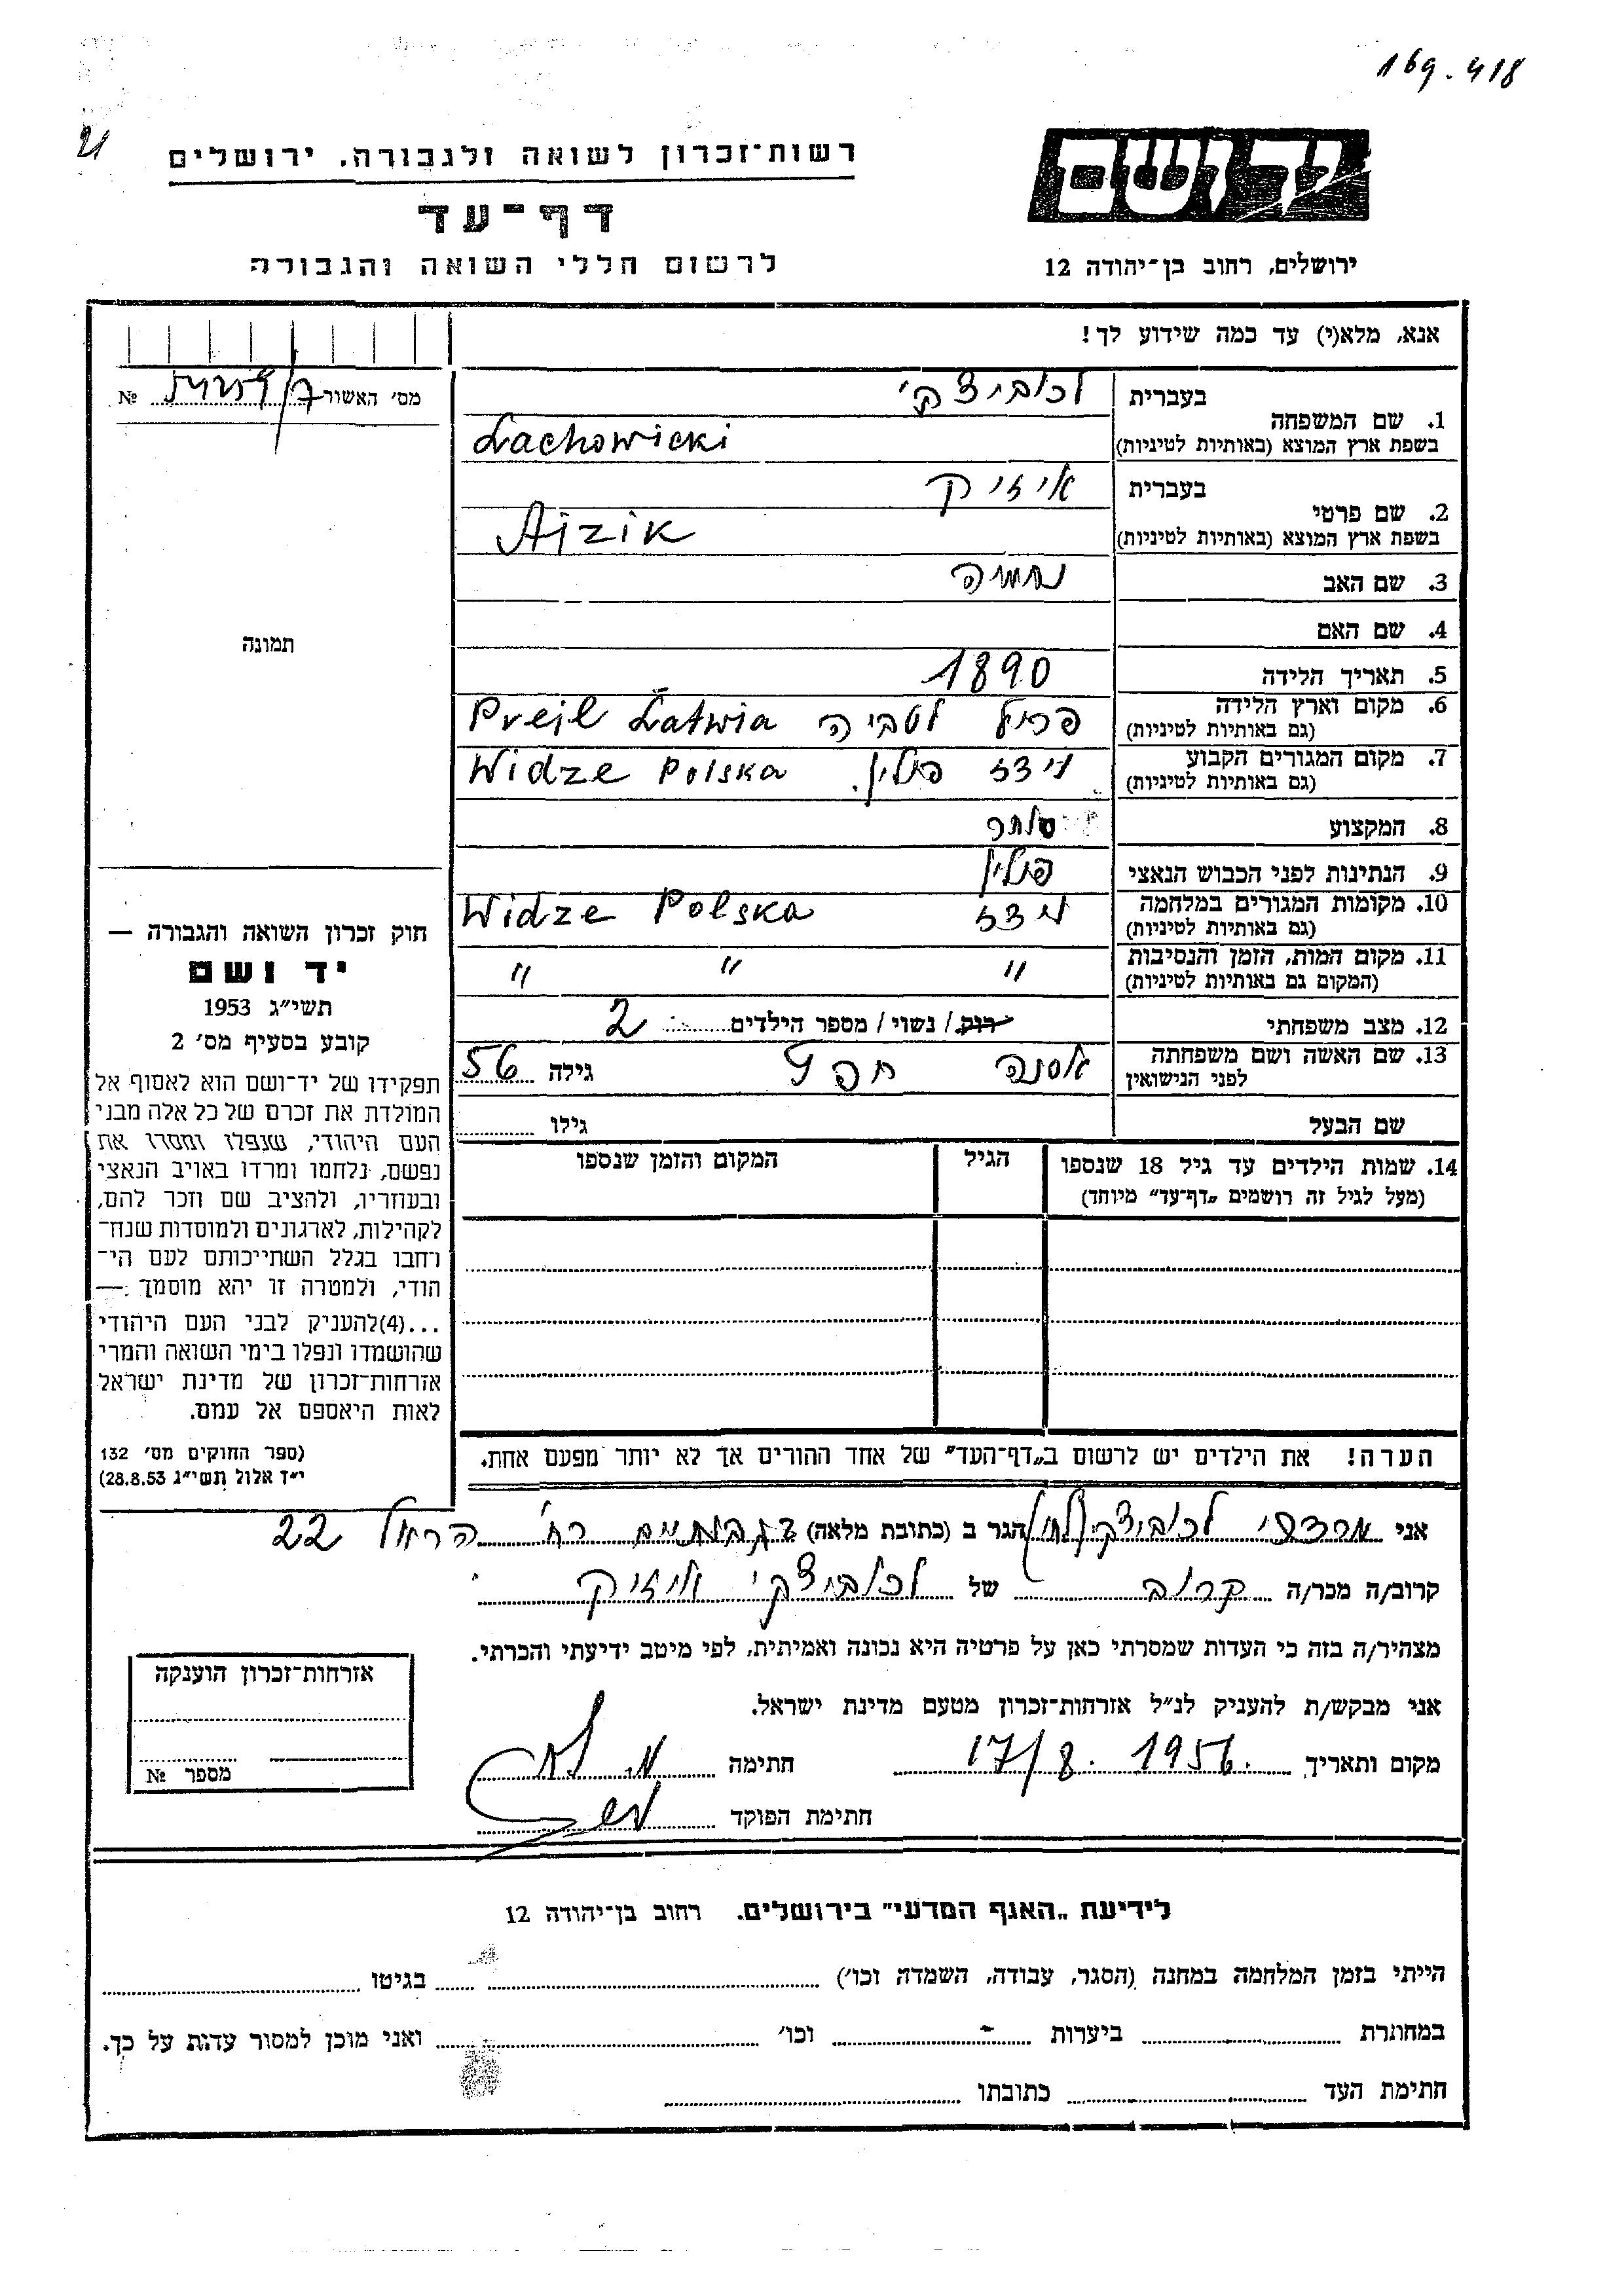 169.418
רשות־זכרון לשואה ולגבורה, ירושלים
דף־עד
לרשום חללי השואה והגבורה
יד ושם
ירושלים, רחוב בן־יהודה 12
אנא, מלא(י) עד כמה שידוע לך!
מס׳ האשור № 
1. שם המשפחה בעברית לכוביצקי
בשפת ארץ המוצא (באותיות לטיניות) Łachowicki
2. שם פרטי בעברית איזיק
בשפת ארץ המוצא (באותיות לטיניות) Ajzik
3. שם האב נחמיה
4. שם האם
תמונה
5. תאריך הלידה 1890
6. מקום וארץ הלידה (גם באותיות לטיניות) פרויל לטביה Prejl Łatwia
7. מקום המגורים הקבוע (גם באותיות לטיניות) וידז פולין. Widze Polska
8. המקצוע סוחר
9. הנתינות לפני הכבוש הנאצי פולין
10. מקומות המגורים במלחמה (גם באותיות לטיניות) וידז Widze Polska
11. מקום המות, הזמן והנסיבות (המקום גם באותיות לטיניות) " " "
12. מצב משפחתי רווק / נשוי / מספר הילדים 2
13. שם האשה ושם משפחתה לפני הנישואין אסנה חפץ גילה 56
שם הבעל גילו
14. שמות הילדים עד גיל 18 שנספו הגיל המקום והזמן שנספו
(מעל לגיל זה רושמים „דף־עד” מיוחד)
חוק זכרון השואה והגבורה —
יד ושם
תשי״ג 1953
קובע בסעיף מס׳ 2
תפקידו של יד־ושם הוא לאסוף אל
המולדת את זכרם של כל אלה מבני
העם היהודי, שנפלו ומסרו את
נפשם, נלחמו ומרדו באויב הנאצי
ובעוזריו, ולהציב שם וזכר להם,
לקהילות, לארגונים ולמוסדות שנח־
רחבו בגלל השתייכותם לעם הי־
הודי, ולמטרה זו יהא מוסמך :—
...(4)להעניק לבני העם היהודי
שהושמדו ונפלו בימי השואה והמרי
אזרחות־זכרון של מדינת ישראל
לאות היאספם אל עמם.
(ספר החוקים מס׳ 132
י״ד אלול תשי״ג 28.8.53)
הערה! את הילדים יש לרשום ב„דף־העד” של אחד ההורים אך לא יותר מפעם אחת.
אני מרדכי לכוביצקי הגר ב (כתובת מלאה) בגבעתיים רח׳ הרואל 22
קרוב/ה מכר/ה קרוב של לכוביצקי איזיק
מצהיר/ה בזה כי העדות שמסרתי כאן על פרטיה היא נכונה ואמיתית, לפי מיטב ידיעתי והכרתי.
אני מבקש/ת להעניק לנ״ל אזרחות־זכרון מטעם מדינת ישראל.
מקום ותאריך 17/8. 1956. חתימה
חתימת הפוקד
אזרחות־זכרון הוענקה
מספר №
לידיעת „האגף המדעי” בירושלים. רחוב בן־יהודה 12
הייתי בזמן המלחמה במחנה (הסגר, עבודה, השמדה וכו׳) בגיטו
במחתרת ביערות וכו׳ ואני מוכן למסור עדות על כך.
חתימת העד כתובתו